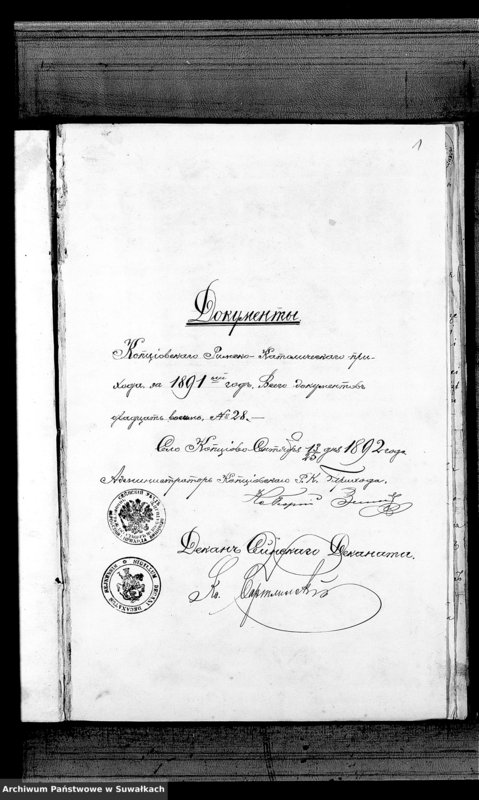 1
Документы
Копціовскаго Римско-Католическаго при-
хода, за 1891 ый годъ, Всего документовъ
двадцать восемь, № 28.—
Село Копціово Сентября 13/25 дня 1892 года
Администраторъ Копціовскаго Р. К. Прихода,
Деканъ Сейнскаго Деканата.
Кс.
SIGILLUM
Archiwum Państwowe w Suwałkach